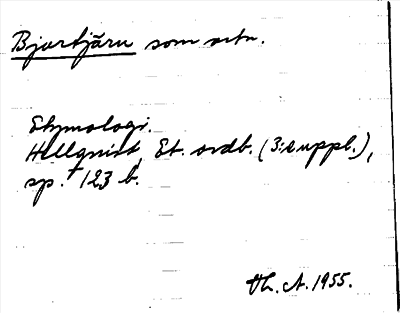 Bjurtjärn som ortn.
Etymologi.
Hellquist, Et. ordb. (3:e uppl.),
sp. 123 b.
Th. A. 1955.